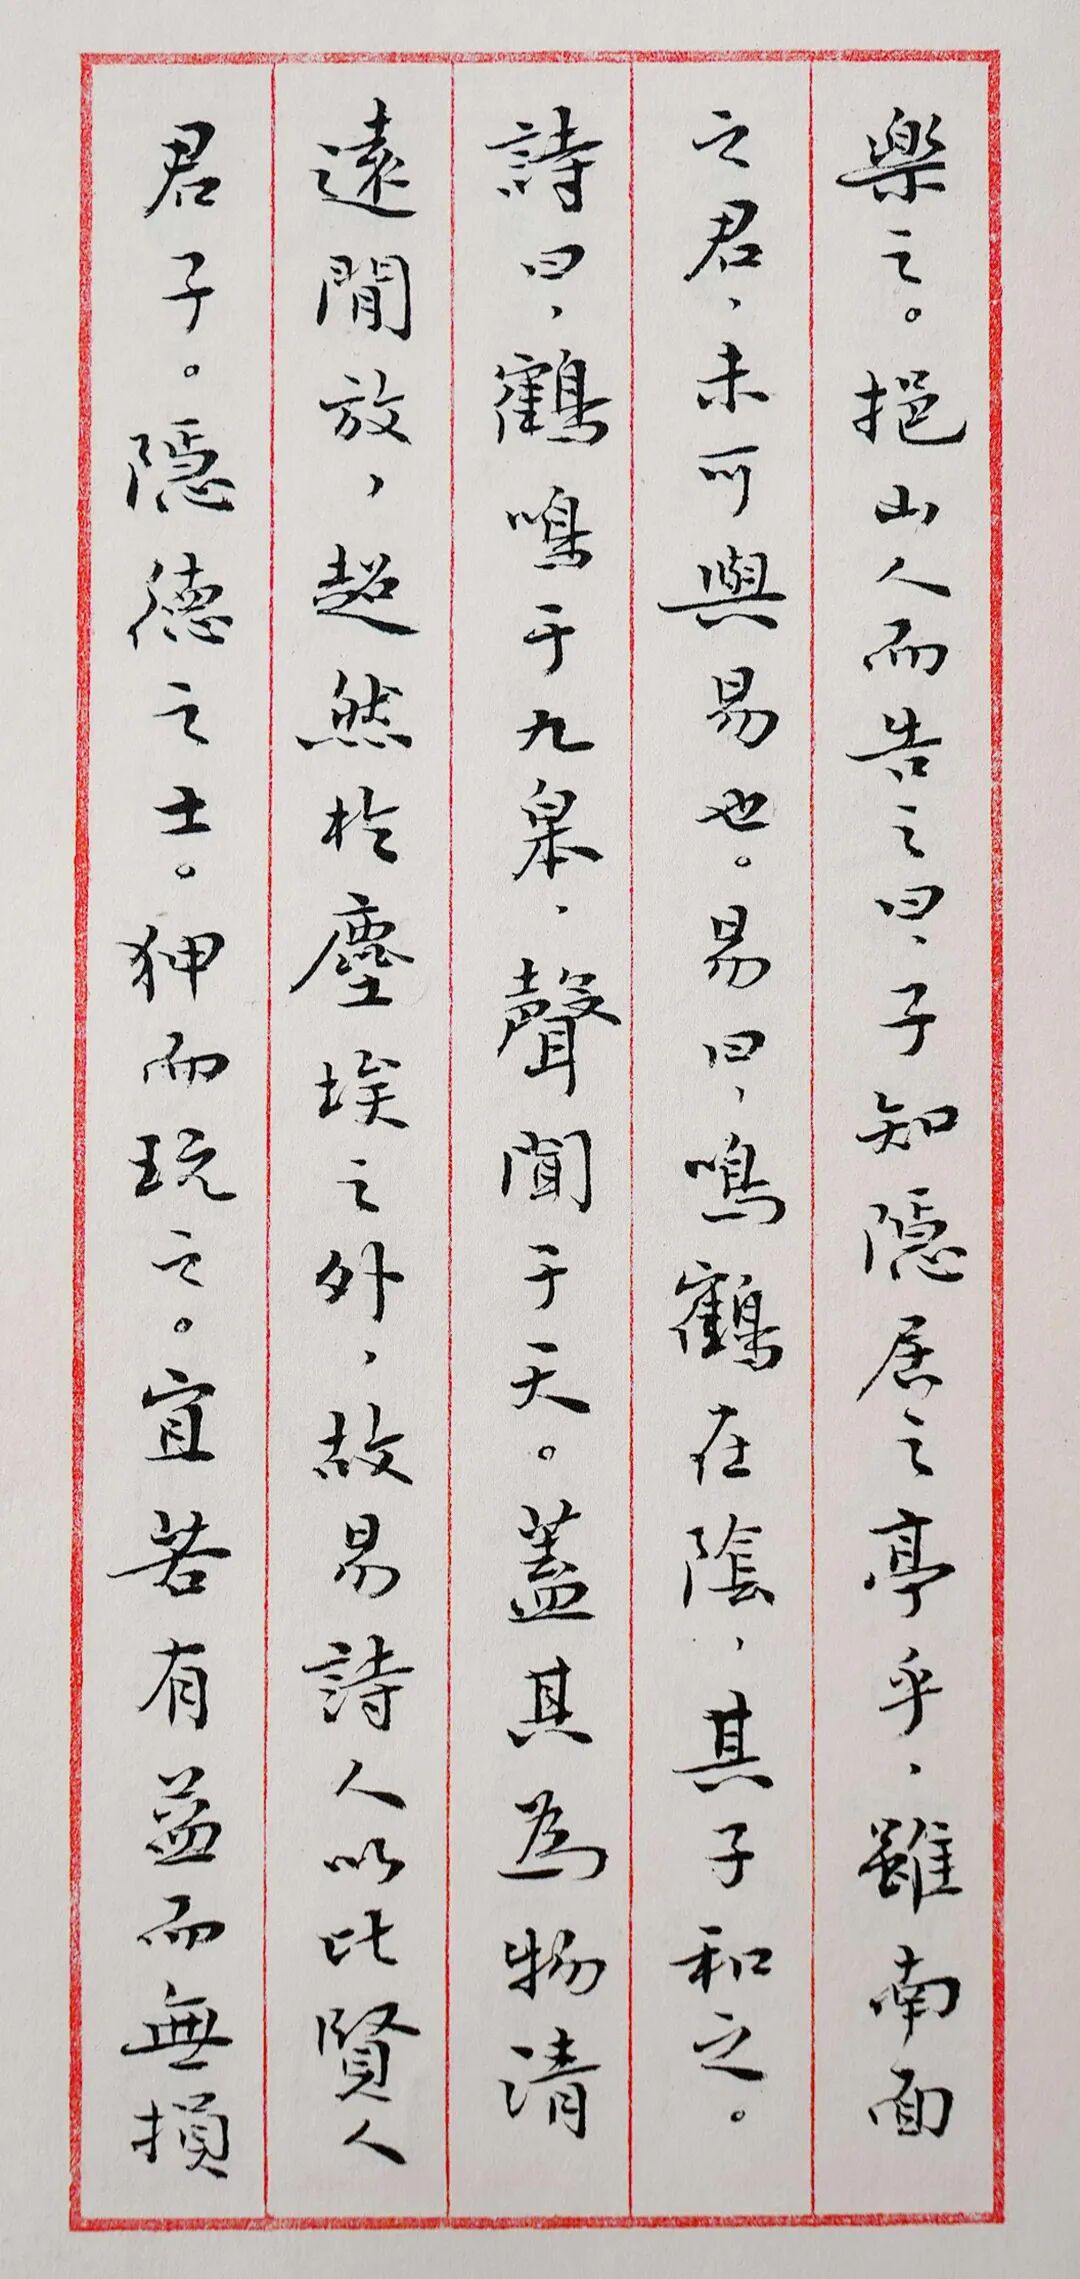 樂之。挹山人而告之曰、子知隱居之亭乎、雖南面
之君、未可與易也。易曰、鳴鶴在陰、其子和之。
詩曰、鶴鳴于九皋、聲聞于天。蓋其為物清
遠閒放，超然於塵埃之外，故易詩人以比賢人
君子。隱德之士。狎而玩之。宜若有益而無損